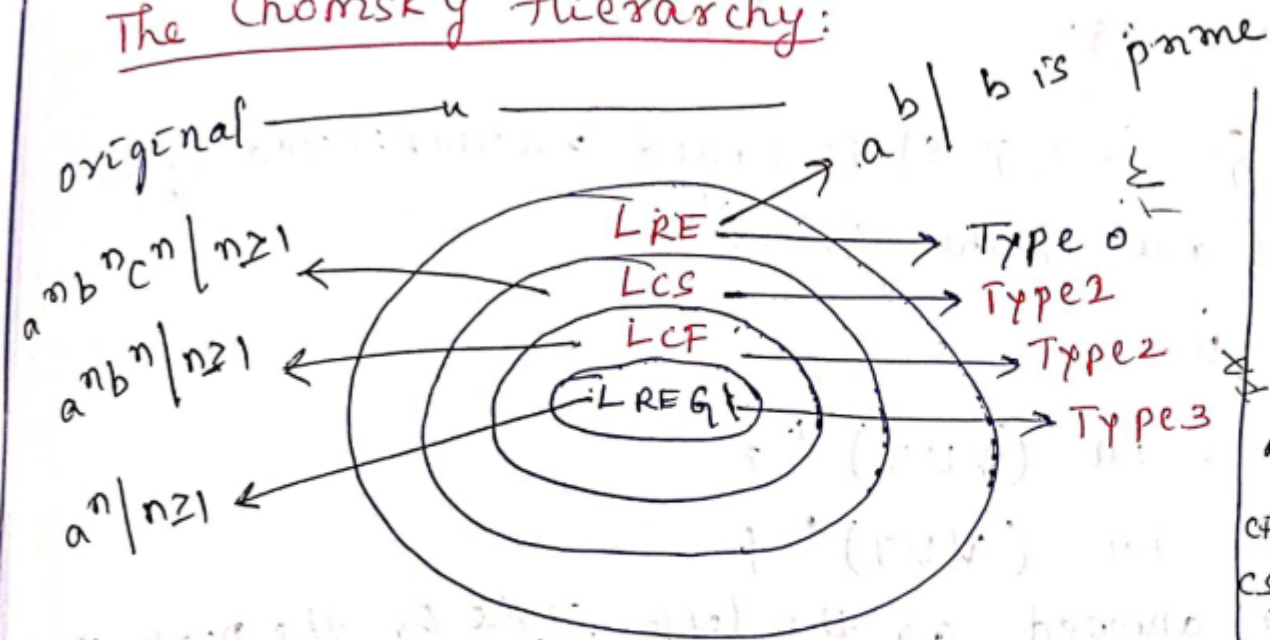 The Chomsky Hierarchy:
origenal
a^b | b is prime
LRE
Type 0
a^n b^n c^n | n≥1
LCS
Type 1
a^n b^n | n≥1
LCF
Type 2
LREG
Type 3
a^n | n≥1